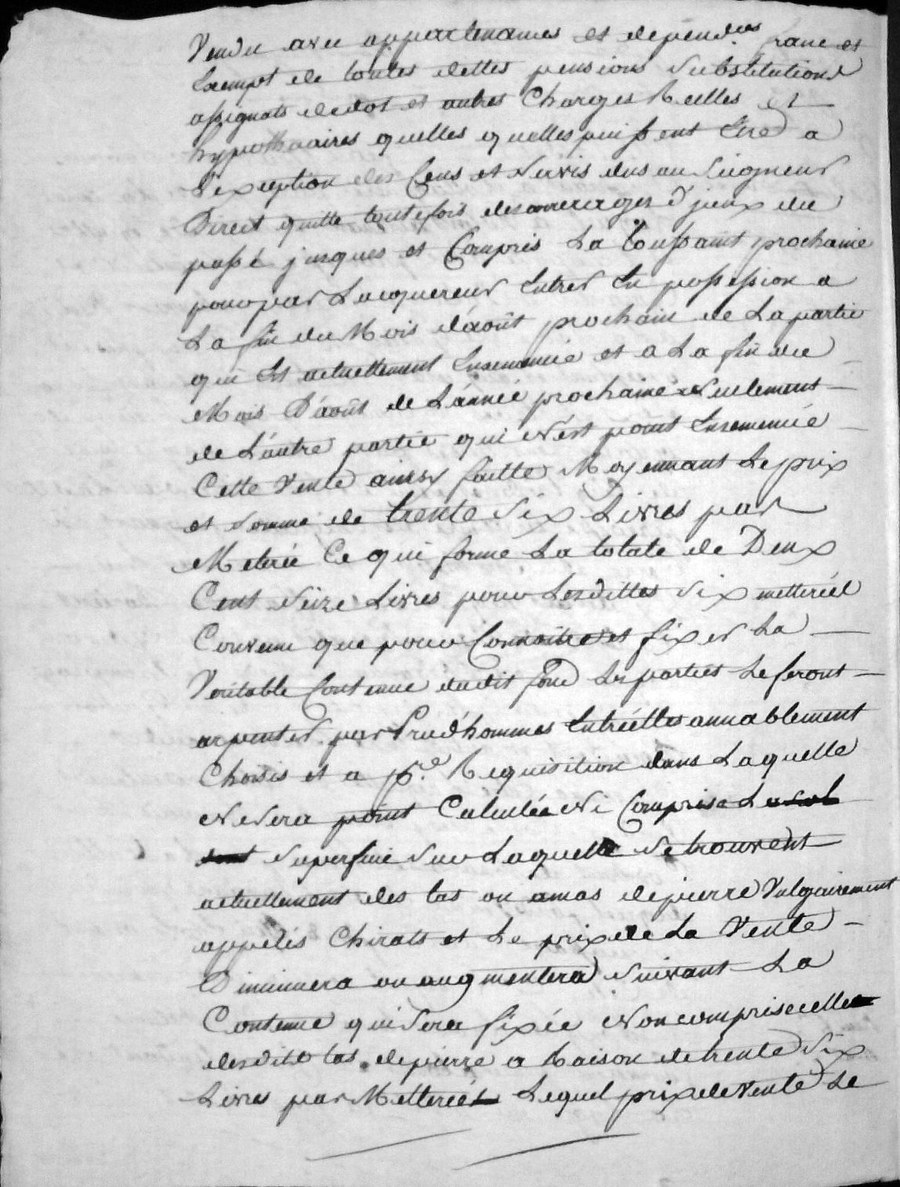 Vendu avec appartenances et dépend.ces franc et
Exempt de toutes dettes pensions substitutions
assignats de dot et autres Charges Réelles et
hypothéquaires quelles quelles puissent Etre a
L'exception des Cens et servis dus au Seigneur
Direct quitte toutefois des arrerages d'jceux du
passé jusques et Compris La toussaint prochaine
pour par Lacquereur Entrer En possession a
La fin du Mois d'août prochain de La partie
qui Est actuellement Ensemencée et a La fin du
Mois D'août de L'année prochaine seulement
de L'autre partie qui N'est point Ensemencée
Cette Vente ainsy faitte Moyennant Le prix
et somme de trente six Livres par
Meterée Ce qui forme La totale de Deux
Cent seize Livres pour Lesdittes six metterées
Convenu que pour Connoitre et fixer La
Veritable Contenue dudit fond Les parties Le feront
arpenter par Prud'hommes Entr'éelles amiablement
Choisis et a p.re Requisition dans Laquelle
Ne sera point Calculée Ni Comprise La
superficie sur Laquelle se trouvent
actuellement des tas ou amas de pierre Vulgairement
appelés Chirats et Le prix de La Vente
Diminuera ou augmentera suivant La
Contenue qui sera fixée Non comprise celle
desdits tas de pierre a Raison de trente six
Livres par Metterée Lequel prix de Vente Le